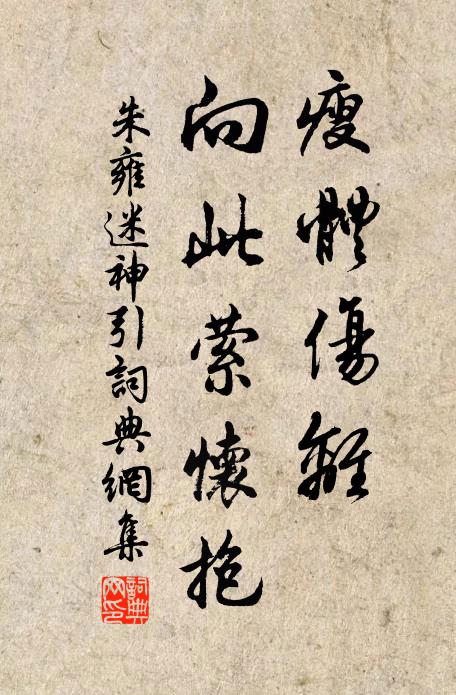 瘦體傷離
向此縈懷抱
朱雍迷神引詞典網集
詞典網印